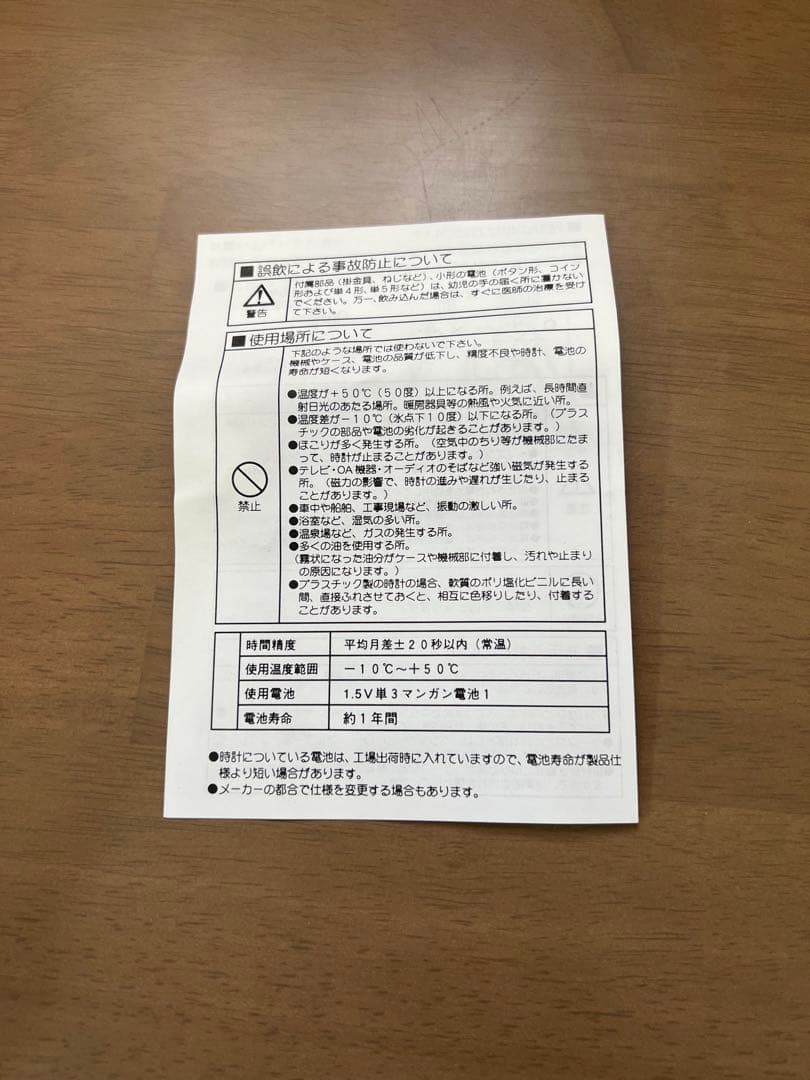 ■誤飲による事故防止について
警告
付属部品(掛金具、ねじなど)、小形の電池(ボタン形、コイン
形および単4形、単5形など)は、幼児の手の届く所に置かない
でください。万一、飲み込んだ場合は、すぐに医師の治療を受け
て下さい。
■使用場所について
禁止
下記のような場所では使わないで下さい。
機械やケース、電池の品質が低下し、精度不良や時計、電池の
寿命が短くなります。
●温度が+50℃(50度)以上になる所。例えば、長時間直
射日光のあたる場所。暖房器具等の熱風や火気に近い所。
●温度差が-10℃(氷点下10度)以下になる所。(プラス
チックの部品や電池の劣化が起きることがあります。)
●ほこりが多く発生する所。(空気中のちり等が機械部にたま
って、時計が止まることがあります。)
●テレビ・OA機器・オーディオのそばなど強い磁気が発生する
所。(磁力の影響で、時計の進みや遅れが生じたり、止まる
ことがあります。)
●車中や船舶、工事現場など、振動の激しい所。
●浴室など、湿気の多い所。
●温泉場など、ガスの発生する所。
●多くの油を使用する所。
(霧状になった油分がケースや機械部に付着し、汚れや止まり
の原因になります。)
●プラスチック製の時計の場合、軟質のポリ塩化ビニルに長い
間、直接ふれさせておくと、相互に色移りしたり、付着する
ことがあります。
時間精度 平均月差±20秒以内(常温)
使用温度範囲 -10℃~+50℃
使用電池 1.5V単3マンガン電池1
電池寿命 約1年間
●時計についている電池は、工場出荷時に入れていますので、電池寿命が製品仕
様より短い場合があります。
●メーカーの都合で仕様を変更する場合もあります。